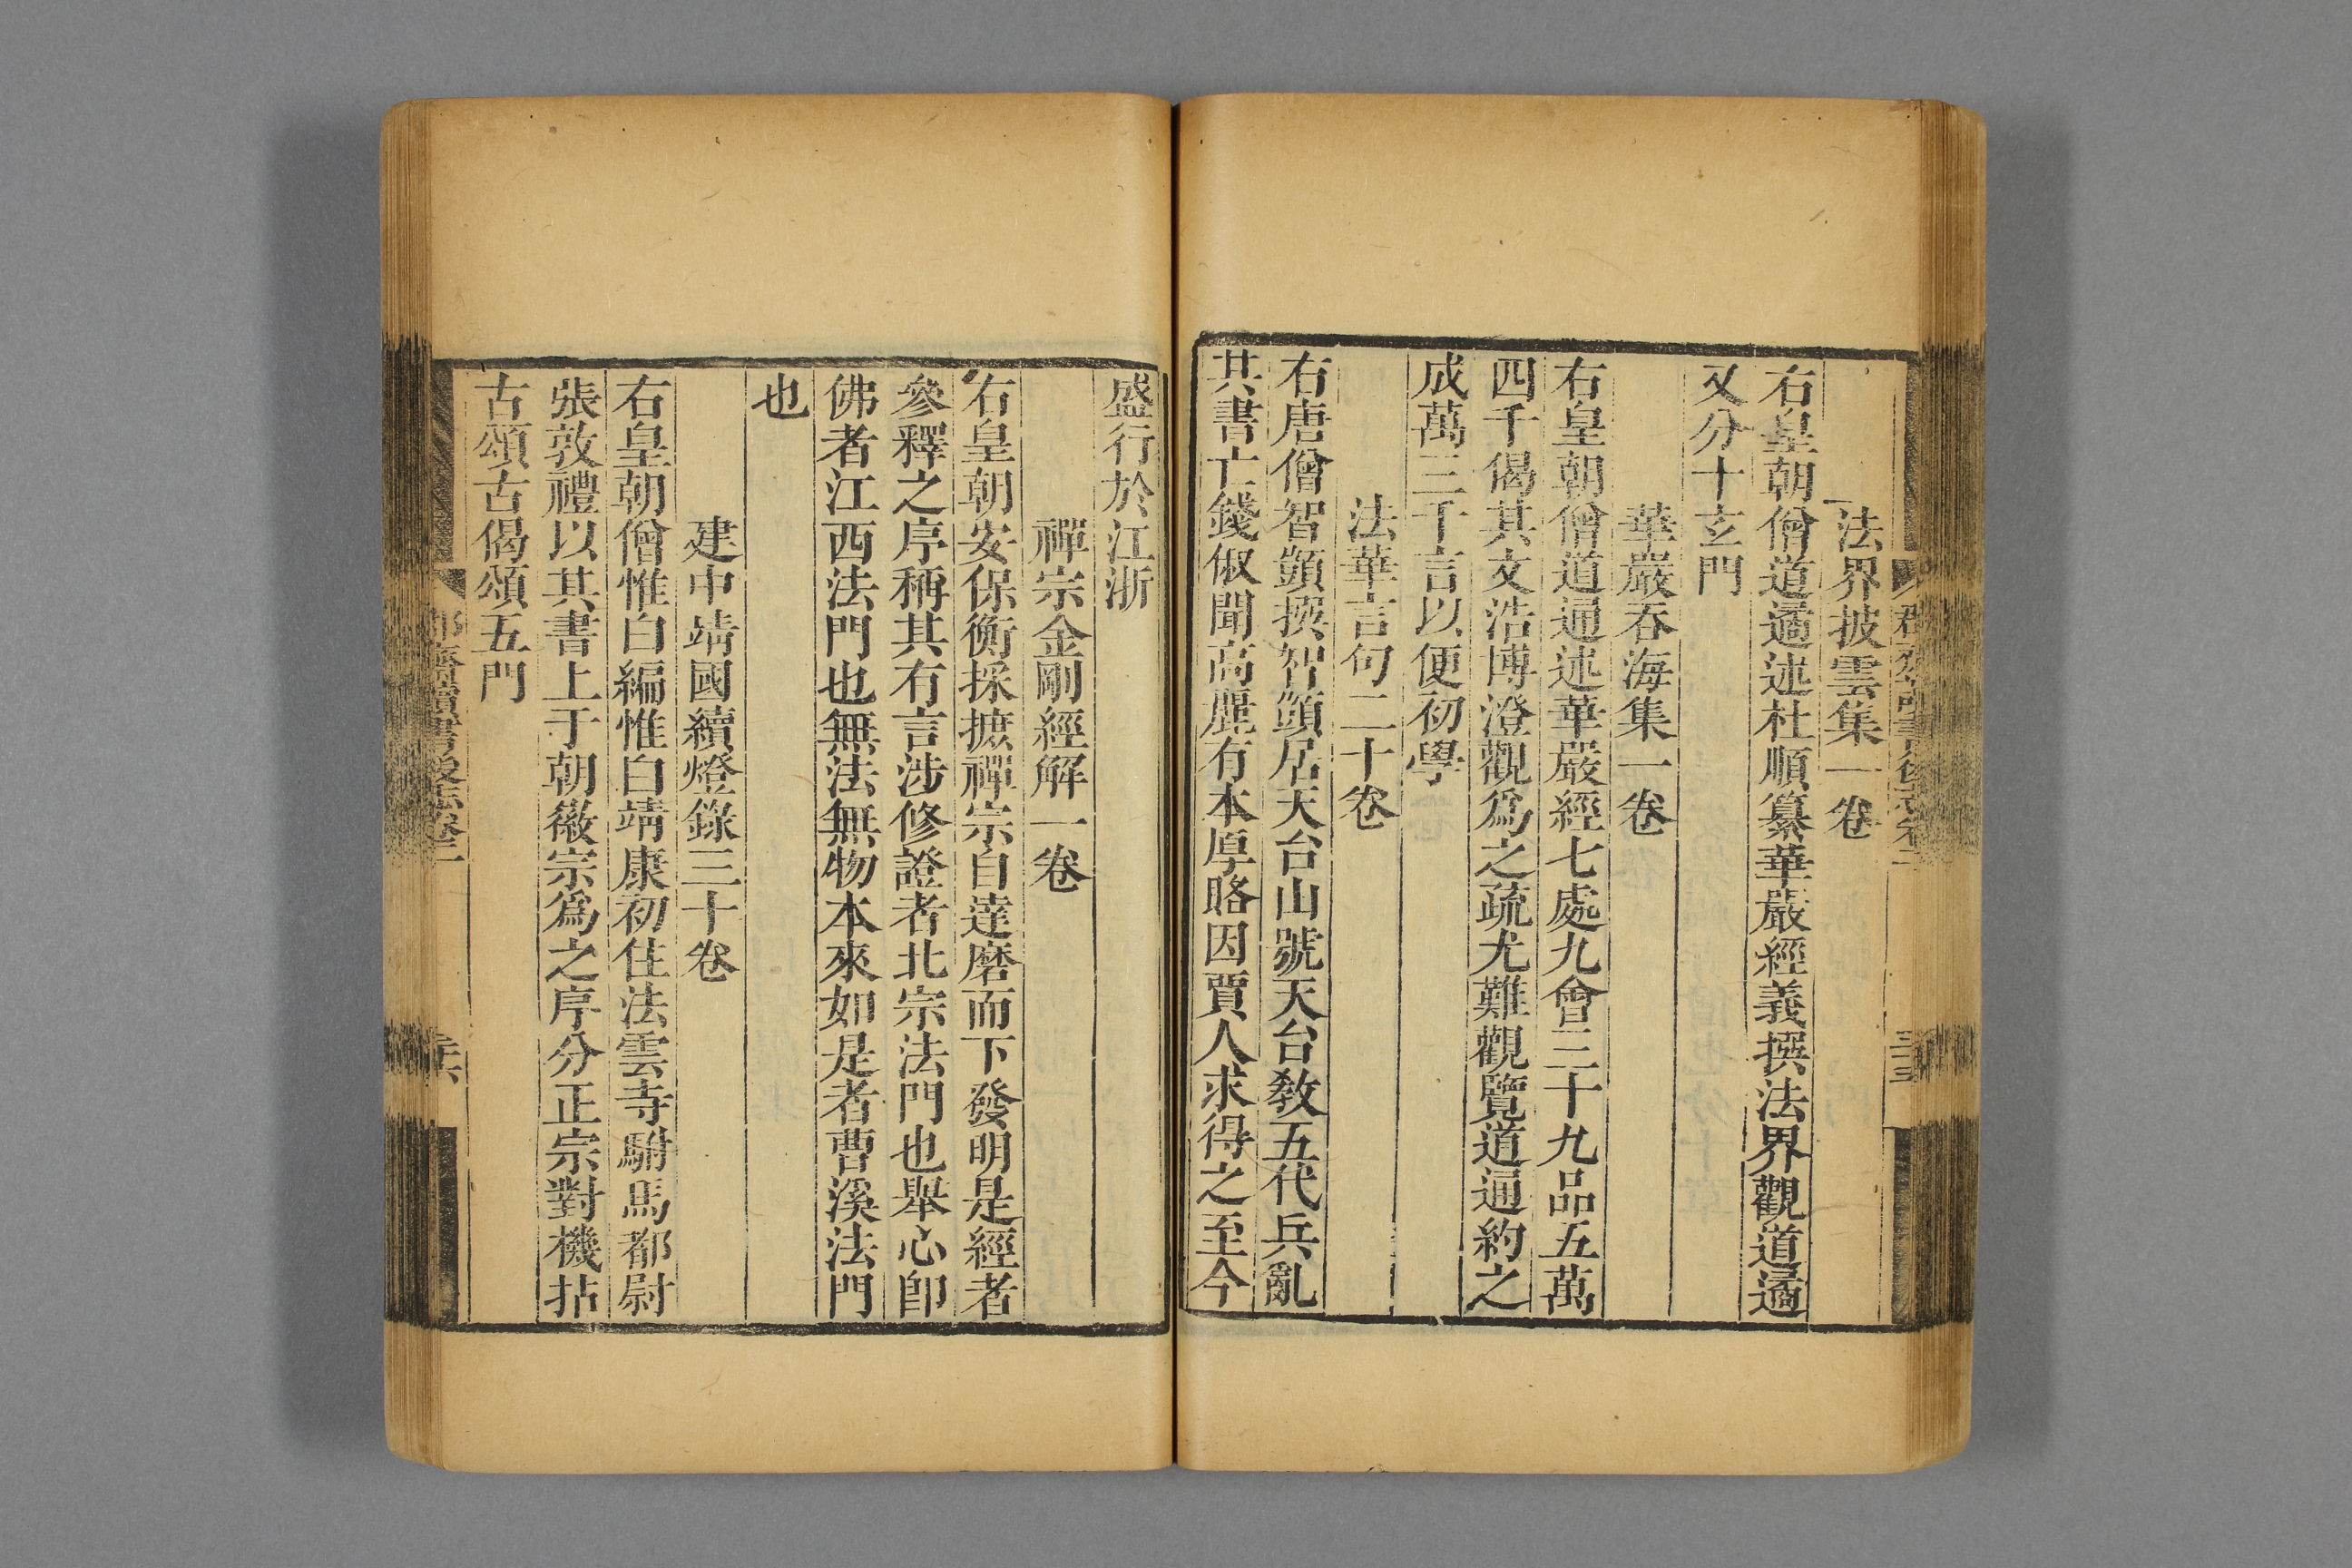 法界披雲集一卷
右皇朝僧道𨗉述杜順纂華嚴經義撰法界觀道𨗉
又分十玄門
華嚴吞海集一卷
右皇朝僧道通述華嚴經七處九會三十九品五萬
四千偈其文浩博澄觀爲之疏尤難觀覽道通約之
成萬三千言以便初學
法華言句二十卷
右唐僧智顗撰智顗居天台山號天台教五代兵亂
其書亡錢俶聞高麗有本厚賂因賈人求得之至今
盛行於江浙
禪宗金剛經解一卷
右皇朝安保衡採摭禪宗自達磨而下發明是經者
參釋之序稱其有言涉修證者北宗法門也舉心卽
佛者江西法門也無法無物本來如是者曹溪法門
也
建中靖國續燈錄三十卷
右皇朝僧惟白編惟白靖康初住法雲寺駙馬都尉
張敦禮以其書上于朝徽宗爲之序分正宗對機拈
古頌古偈頌五門
郡齋讀書後志卷二